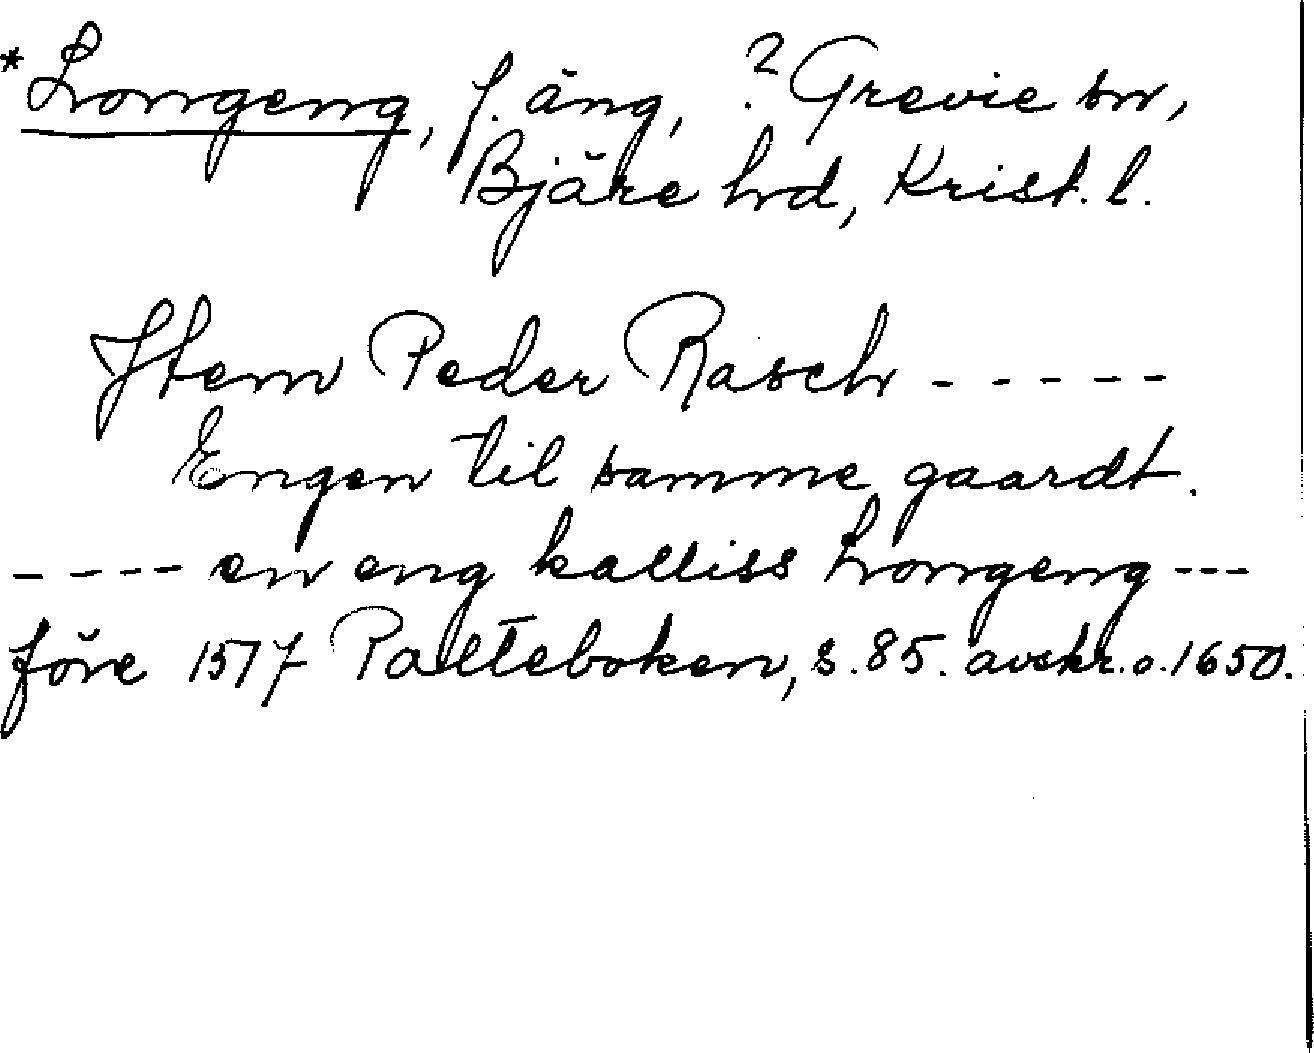 *Longeng, f. äng, ? Grevie sn,
Bjäre hd, Krist. l.
Item Peder Rasch - - - - -
Engen til samme gaardt.
- - - - en eng kalliss Longeng - - -
före 1517 Palteboken, s. 85. avskr. o. 1650.